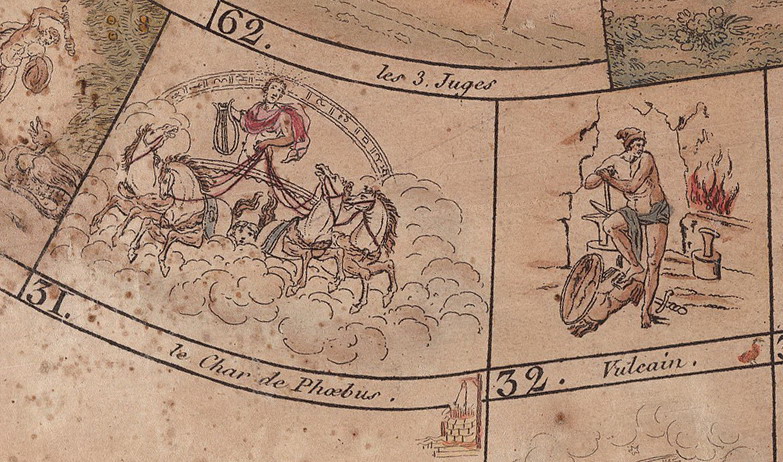 62.
les 3. Juges
31.
le Char de Phœbus.
32.
Vulcain.